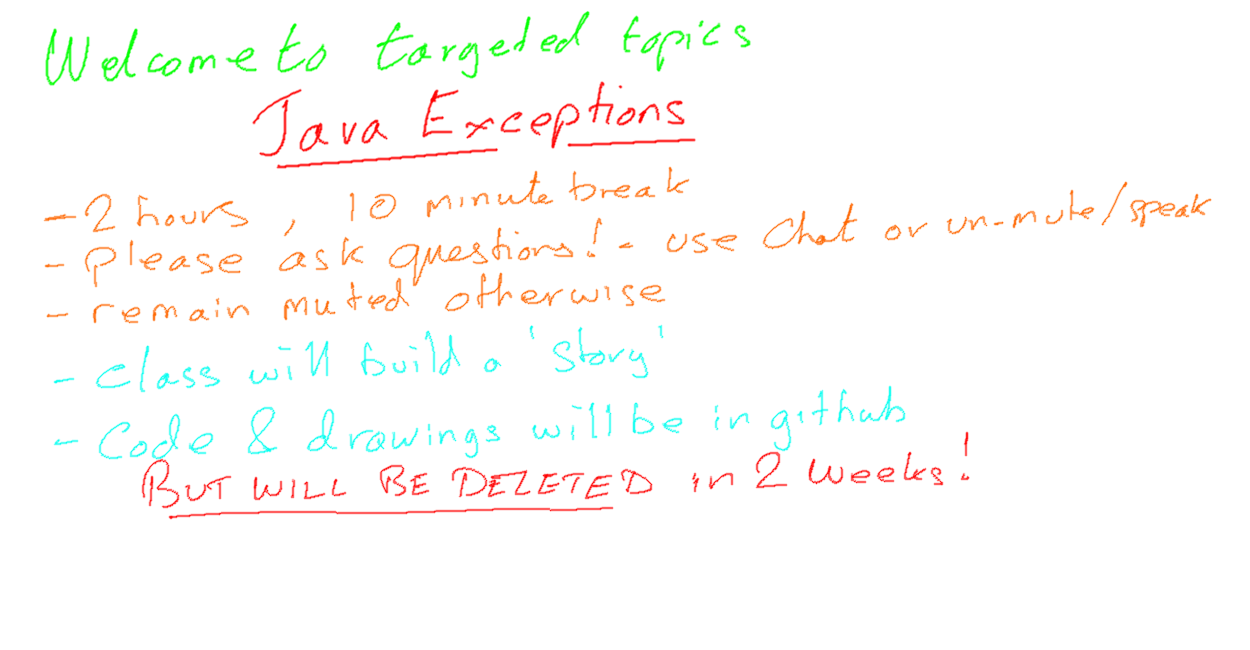 Welcome to targeted topics
Java Exceptions
- 2 hours, 10 minute break
- please ask questions! - use Chat or un-mute/speak
- remain muted otherwise
- class will build a 'story'
- Code & drawings will be in github
BUT WILL BE DELETED in 2 weeks!